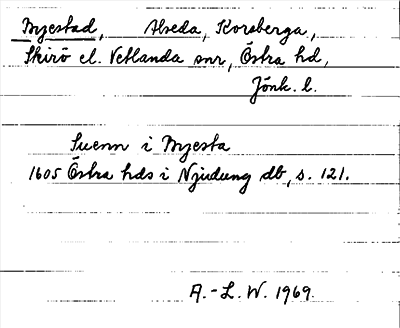 Myestad, Alseda, Korsberga,
Skirö el. Vetlanda snr, Östra hd,
Jönk. l.
Suenn i Myesta
1605 Östra hds i Njudung db, s. 121.
A.-L. W. 1969.